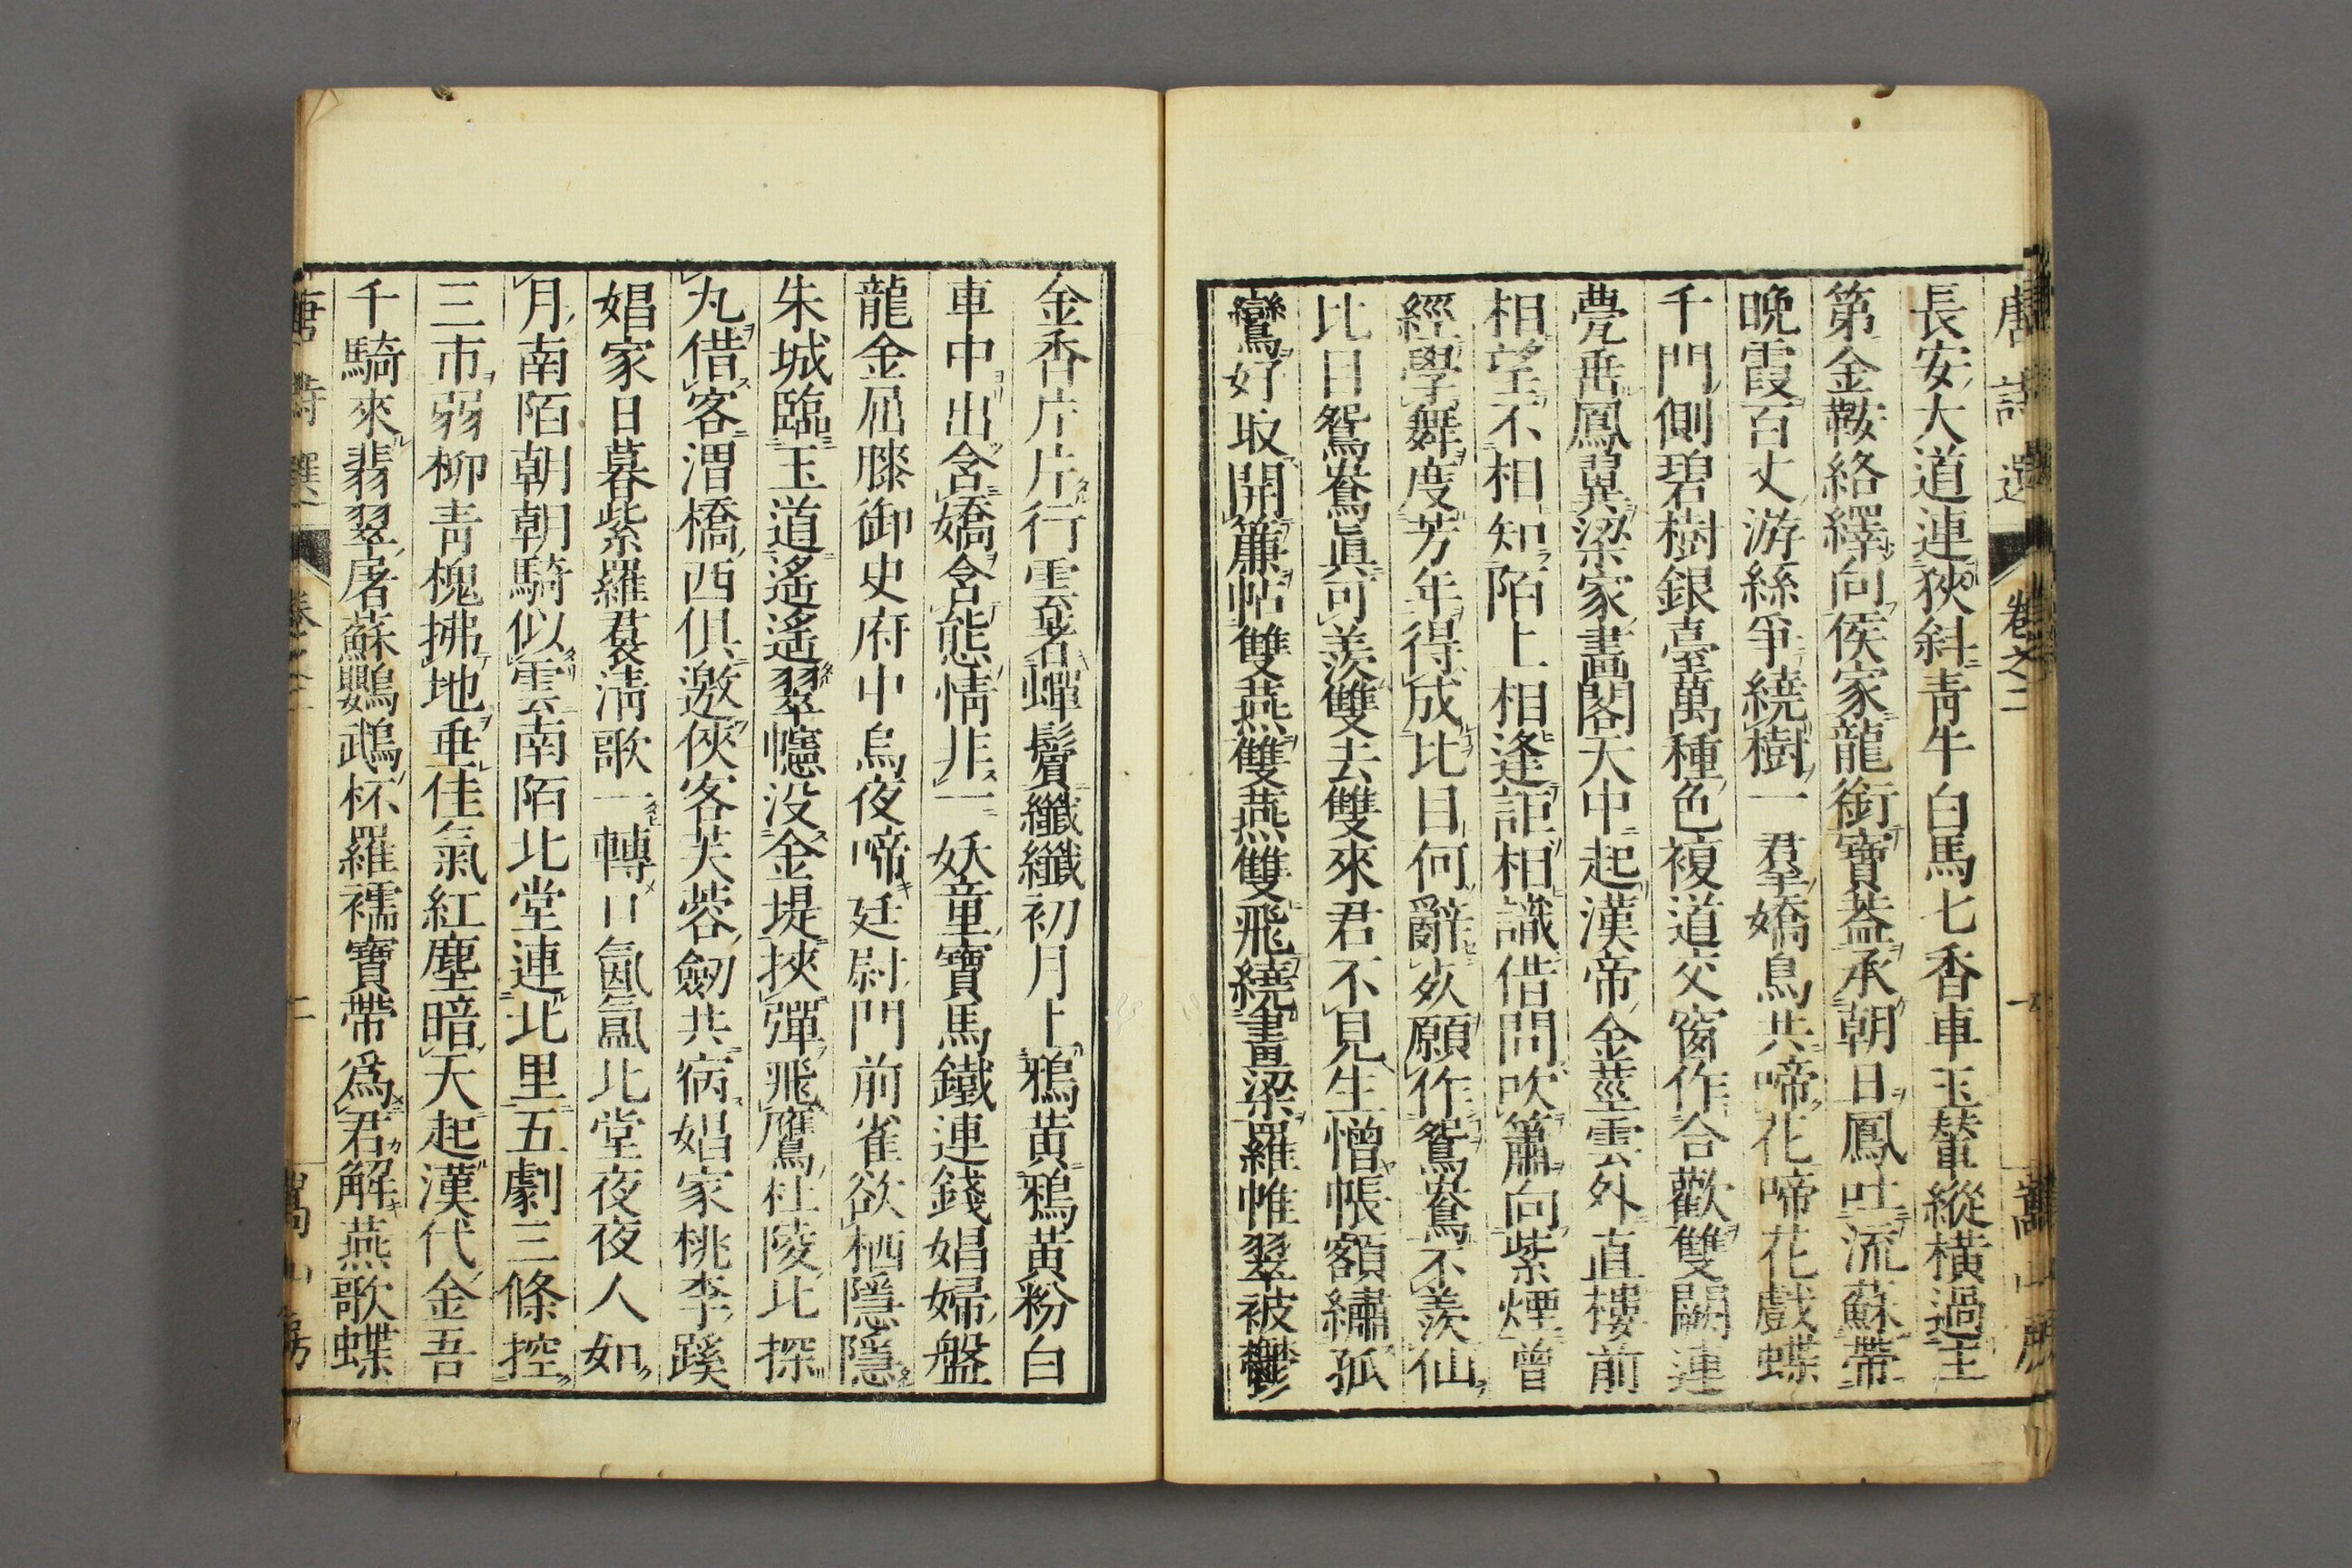 唐詩選 卷之二 一 嵩山房
長安大道連狹斜青牛白馬七香車玉輦縱橫過主
第金鞍絡繹向侯家龍銜寶蓋承朝日鳳吐流蘇帶
晚霞百丈游絲爭繞樹一羣嬌鳥共啼花啼花戲蝶
千門側碧樹銀臺萬種色複道交窗作合歡雙闕連
甍垂鳳翼梁家畫閣天中起漢帝金莖雲外直樓前
相望不相知陌上相逢詎相識借問吹簫向紫煙曾
經學舞度芳年得成比目何辭死願作鴛鴦不羨仙
比目鴛鴦眞可羨雙去雙來君不見生憎帳額繡孤
鸞好取開簾帖雙燕雙燕雙飛繞畫梁羅帷翠被鬱
金香片片行雲著蟬鬢纖纖初月上鴉黃鴉黃粉白
車中出含嬌含態情非一妖童寶馬鐵連錢娼婦盤
龍金屈膝御史府中烏夜啼廷尉門前雀欲栖隱隱
朱城臨玉道遙遙翠幰沒金堤挾彈飛鷹杜陵北探
丸借客渭橋西俱邀俠客芙蓉劒共宿娼家桃李蹊
娼家日暮紫羅裙淸歌一轉口氤氳北堂夜夜人如
月南陌朝朝騎似雲南陌北堂連北里五劇三條控
三市弱柳青槐拂地垂佳氣紅塵暗天起漢代金吾
千騎來翡翠屠蘇鸚鵡杯羅襦寶帶爲君解燕歌蝶
唐詩選